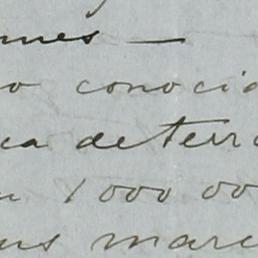 mes —
o conocid
ca de terr
1000 00
us marc